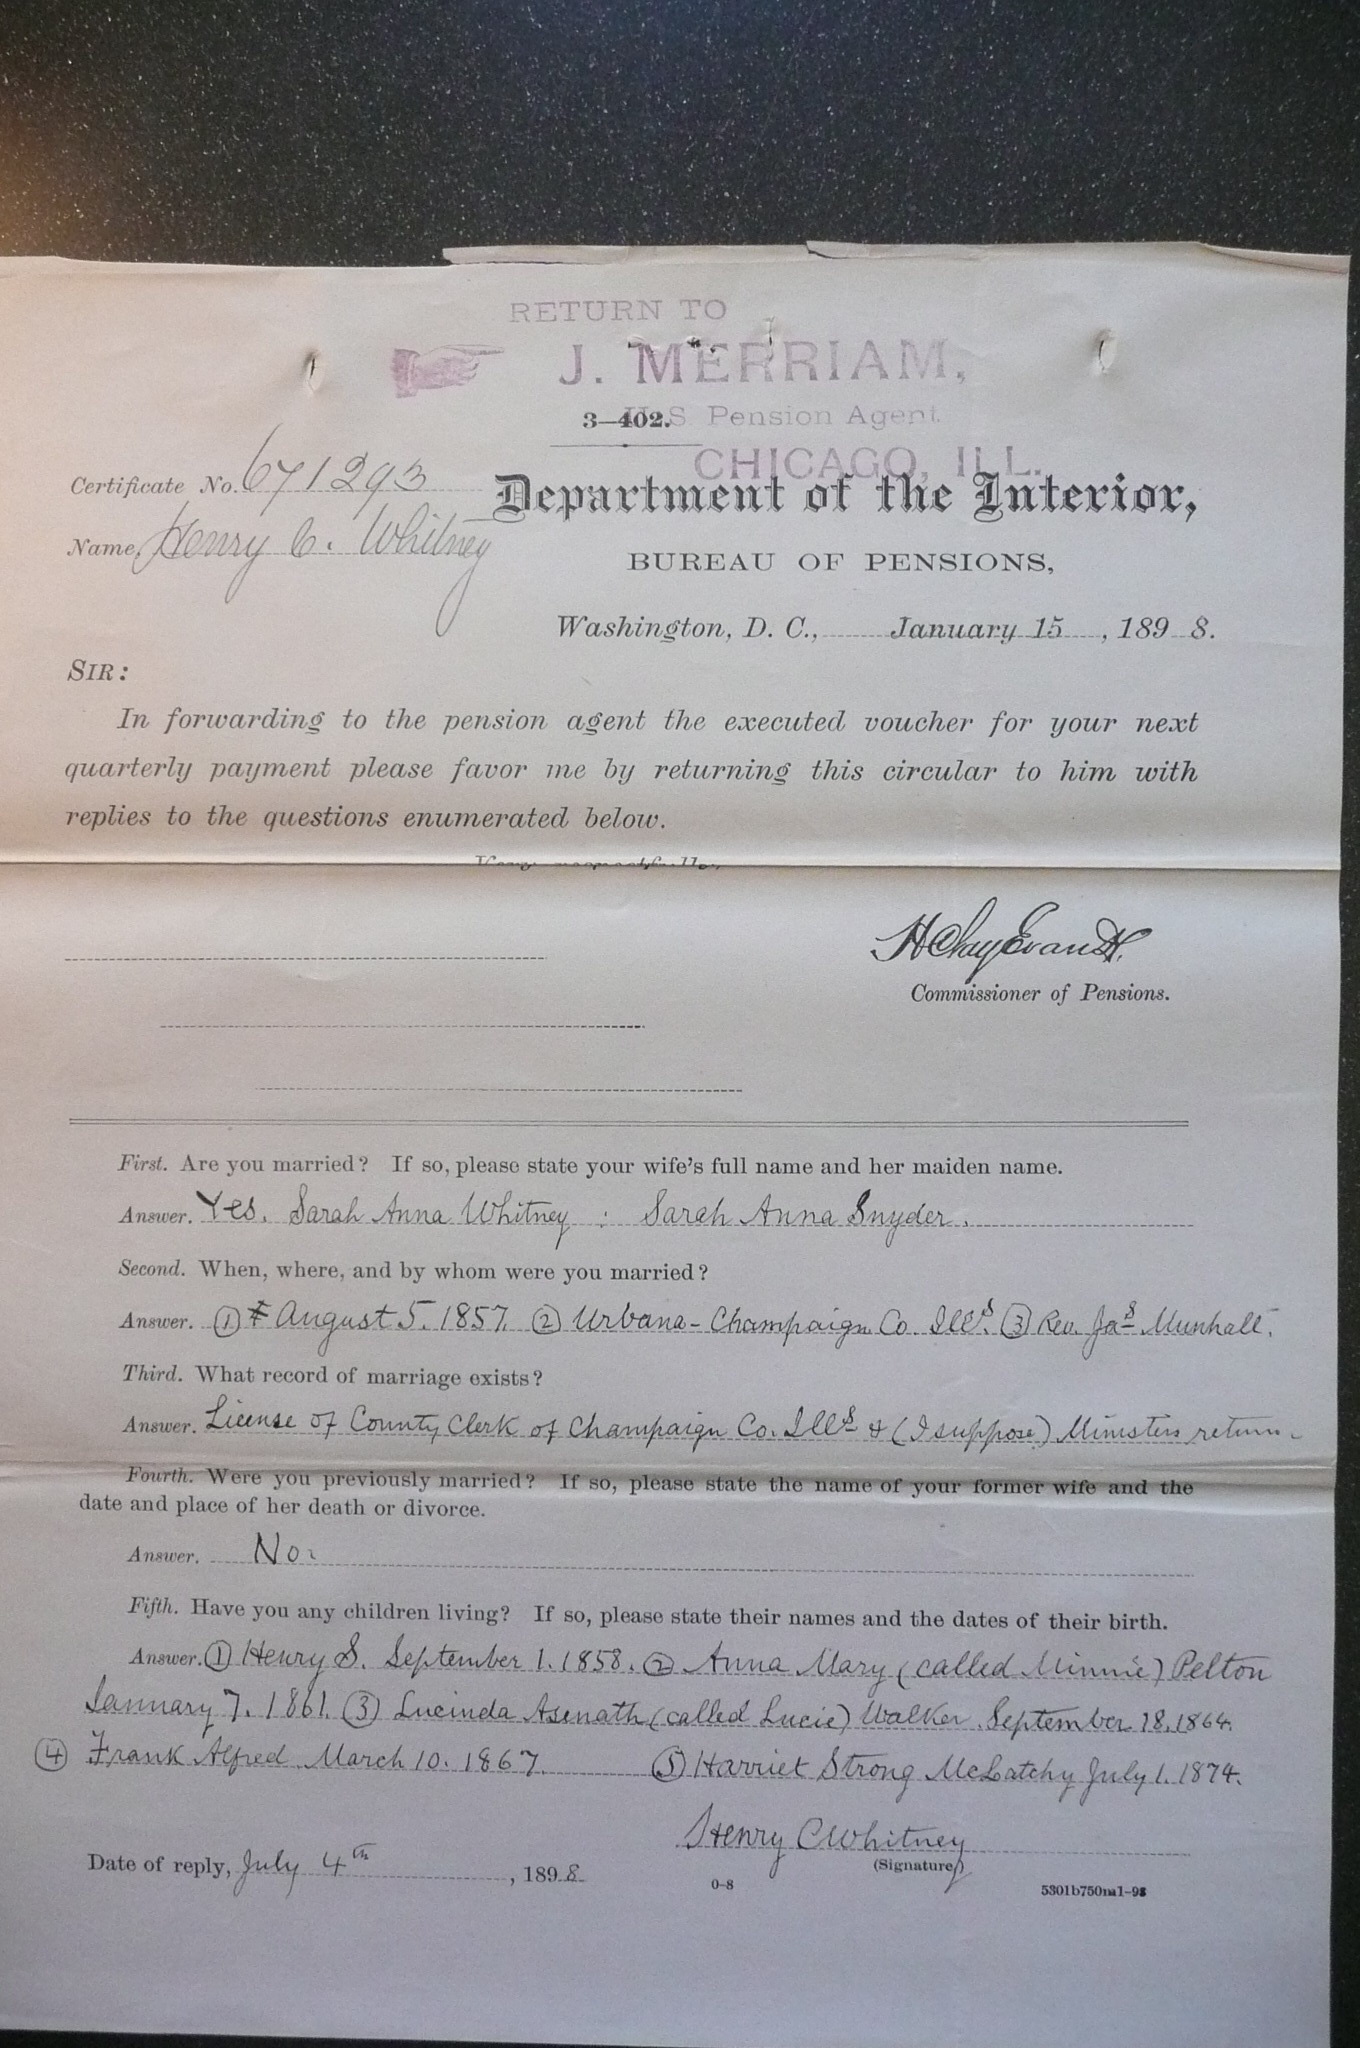 RETURN TO
J. MERRIAM,
3—402. U.S Pension Agent.
CHICAGO, ILL.
Certificate No. 671293
Department of the Interior,
Name, Henry C. Whitney
BUREAU OF PENSIONS,
Washington, D. C., January 15, 1898.
SIR:
In forwarding to the pension agent the executed voucher for your next
quarterly payment please favor me by returning this circular to him with
replies to the questions enumerated below.
Very respectfully,
H Clay Evans
Commissioner of Pensions.
First. Are you married? If so, please state your wife's full name and her maiden name.
Answer. Yes. Sarah Anna Whitney : Sarah Anna Snyder.
Second. When, where, and by whom were you married?
Answer. ① August 5. 1857. ② Urbana - Champaign Co. Ills. ③ Rev. Jas Munhall.
Third. What record of marriage exists?
Answer. License of County Clerk of Champaign Co. Ills & (I suppose) Ministers return.
Fourth. Were you previously married? If so, please state the name of your former wife and the
date and place of her death or divorce.
Answer. No.
Fifth. Have you any children living? If so, please state their names and the dates of their birth.
Answer. ① Henry S. September 1. 1858. ② Anna Mary (called Minnie) Pelton
January 7. 1861. ③ Lucinda Asenath (called Lucie) Walker. September 18. 1864.
④ Frank Alfred March 10. 1867. ⑤ Harriet Strong McLatchy July 1. 1874.
Henry C Whitney
Date of reply, July 4th, 1898
(Signature)
0-8
5301b750m1-98